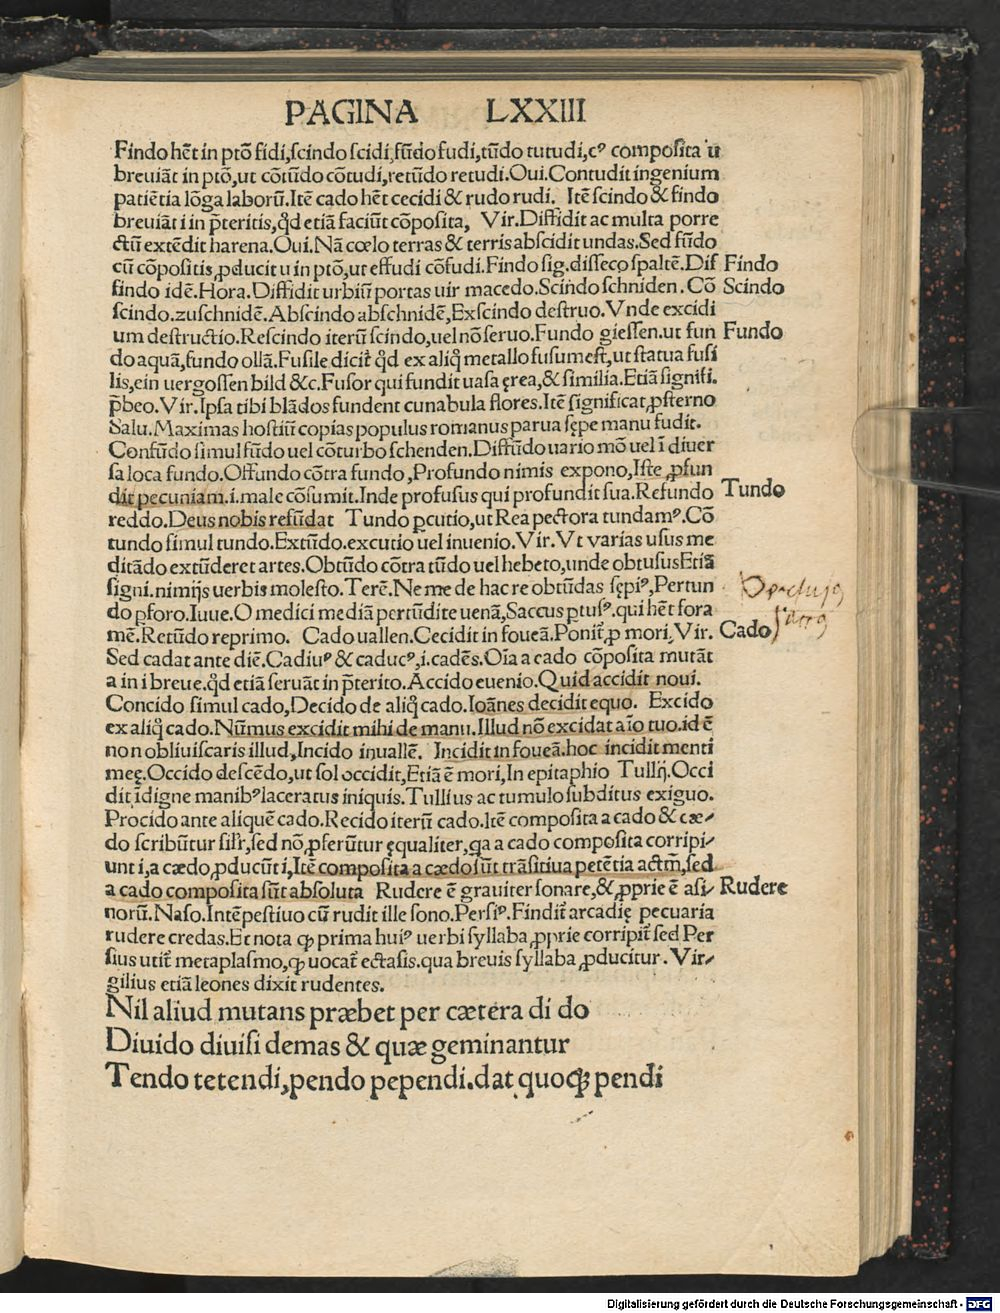 PAGINA LXXIII
Findo hẽt in ptõ fidi,ſcindo ſcidi,fũdo fudi,tũdo tutudi,cꝰ compoſita u
breuiãt in ptõ,ut cõtũdo cõtudi,retũdo retudi.Oui.Contudit ingenium
patiẽtia lõga laborũ.Itẽ cado hẽt cecidi & rudo rudi. Itẽ ſcindo & findo
breuiãt i in p̃teritis,qđ etiã faciũt cõpoſita, Vir.Diffidit ac multa porre
ctũ extẽdit harena.Oui.Nã cœlo terras & terris abſcidit undas.Sed fũdo
cũ cõpoſitis,ꝓducit u in ptõ,ut effudi cõfudi.Findo ſig.diſſeco ſpaltẽ.Dif Findo
findo idẽ.Hora.Diffidit urbiũ portas uir macedo.Scindo ſchniden.Cõ Scindo
ſcindo.zuſchnidẽ.Abſcindo abſchnidẽ,Exſcindo deſtruo.Vnde excidi
um deſtructio.Reſcindo iterũ ſcindo,uel nõ ſeruo.Fundo gieſſen.ut fun Fundo
do aquã,fundo ollã.Fuſile dicit̃ qđ ex aliq̃ metallo fuſumeſt,ut ſtatua fuſi
lis,ein uergoſſen bild &c.Fuſor qui fundit uaſa ęrea,& ſimilia.Etiã ſignifi.
p̃beo.Vir.Ipſa tibi blãdos fundent cunabula flores.Itẽ ſignificat,ꝓſterno
Salu.Maximas hoſtiũ copias populus romanus parua ſępe manu fudit.
Confũdo ſimul fũdo uel cõturbo ſchenden.Diffũdo uario mõ uel ĩ diuer
ſa loca fundo.Offundo cõtra fundo,Profundo nimis expono,Iſte ꝓfun
dit pecuniam.i.male cõſumit.Inde profuſus qui profundit ſua.Refundo Tundo
reddo.Deus nobis refũdat Tundo ꝑcutio,ut Rea pectora tundamꝰ.Cõ
tundo ſimul tundo.Extũdo.excutio uel inuenio.Vir.Vt varias uſus me
ditãdo extũderet artes.Obtũdo cõtra tũdo uel hebeto,unde obtuſusEtiã
ſigni.nimijs uerbis moleſto.Terẽ.Ne me de hac re obtũdas ſępiꝰ,Pertun
do ꝑforo.Iuue.O medici mediã pertũdite uenã,Saccus ꝑtuſꝰ.qui hẽt fora
mẽ.Retũdo reprimo. Cado uallen.Cecidit in foueã.Ponit̃ ꝓ mori,Vir. Cado
Sed cadat ante diẽ.Cadiuꝰ & caducꝰ,i.cadẽs.Oĩa a cado cõpoſita mutãt
a in i breue.qđ etiã ſeruãt in p̃terito.Accido euenio.Quid accidit noui.
Concido ſimul cado,Decido de aliq̃ cado.Ioãnes decidit equo. Excido
ex aliq̃ cado.Nũmus excidit mihi de manu.Illud nõ excidat aĩo tuo.id ẽ
non obliuiſcaris illud,Incido in uallẽ. Incidit in foueã.hoc incidit menti
meę.Occido deſcẽdo,ut ſol occidit,Etiã ẽ mori,In epitaphio Tullij.Occi
dit ĩdigne manibꝰ laceratus iniquis.Tullius ac tumulo ſubditus exiguo.
Procido ante aliquẽ cado.Recido iterũ cado.Itẽ compoſita a cado & cæ-
do ſcribũtur ſiłr,ſed nõ ꝓferũtur ęqualiter,q̃a a cado compoſita corripi-
unt i,a cædo,ꝓducũt i,Itẽ compoſita a cædo ſũt trãſitiua petẽtia actm̃,ſed
a cado compoſita ſũt abſoluta Rudere ẽ grauiter ſonare,& ꝓprie ẽ aſi- Rudere
norũ.Naſo.Intẽpeſtiuo cũ rudit ille ſono.Perſiꝰ.Findit̃ arcadię pecuaria
rudere credas.Et nota ꝙ prima huiꝰ uerbi ſyllaba ꝓprie corripit̃ ſed Per
ſius utit̃ metaplaſmo,ꝙ uocat̃ ectaſis.qua breuis ſyllaba ꝓducitur.Vir-
gilius etiã leones dixit rudentes.
Nil aliud mutans præbet per cætera di do
Diuido diuiſi demas & quæ geminantur
Tendo tetendi,pendo pependi.dat quoqꝫ pendi
Digitalisierung gefördert durch die Deutsche Forschungsgemeinschaft - DFG